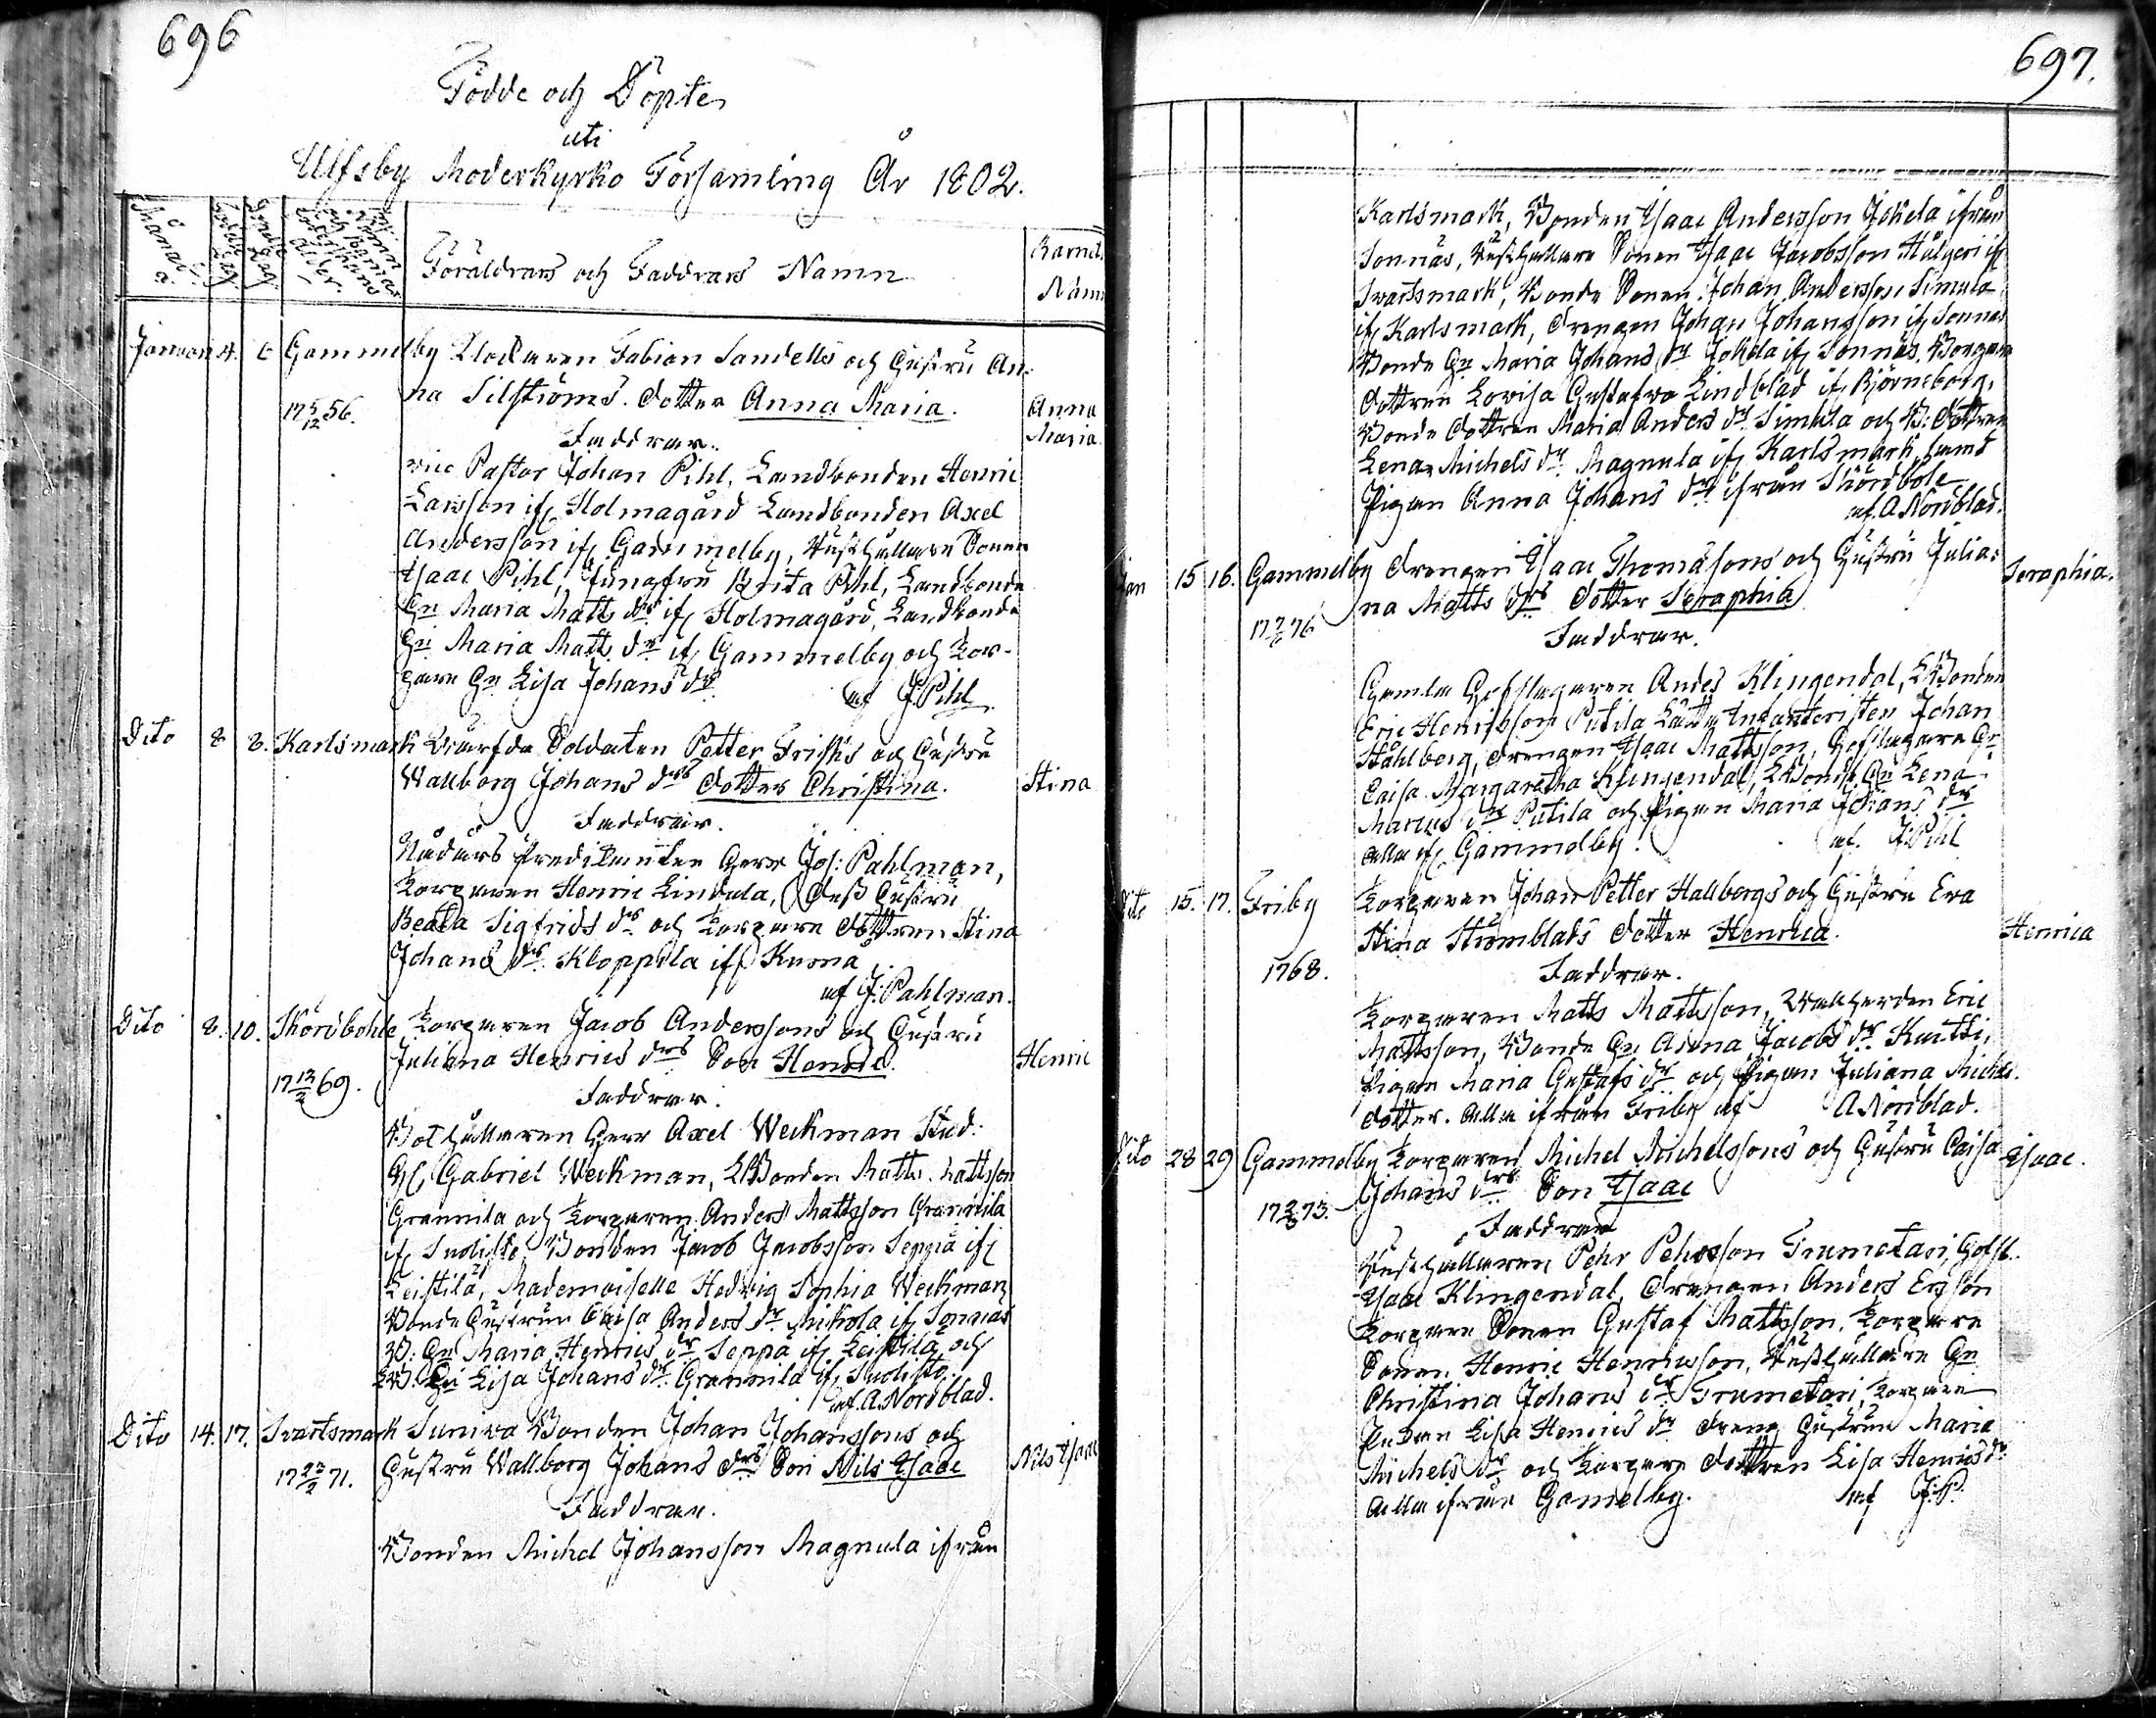 696
Födde och Döpte
uti
Ulfsby Moderkyrko Församling År 1802.
Månad
Födelse Dag
Döpelse Dag
Föräldrars och Faddrars Namn
Barnets
Namn
Januari 4. 6 Gammelby Klockaren Fabian Sandells och Hustru An-
na Silströms. dotter Anna Maria.
17 5/12 56.
Anna
Maria
Faddrar.
vice Pastor Johan Pihl, Landbonden Henric
Larsson if. Holmagård Landbonden Axel
Andersson if. Gammelby, Rusthållare Sonen
Isaac Pihl, Jungfru Brita Pihl, Landbonde
Hu Maria Matts dr if. Holmagård, Landbonde
Hu Maria Matts dr if. Gammelby och Tor-
pare Hu Lisa Johans dr
af J. Pihl
Dito 8 8. Karlsmark Wärfda Soldaten Petter Frisks och Hustru
Wallborg Johans drs dotter Christina.
Stina
Faddrar.
Nådårs Predikanten Herr Joh: Pahlman,
Torparen Henric Lindula, dess Hustru
Beata Sigfrids dr och Torpare dottren Stina
Johans dr Kloppila if. Kumå
af J: Pahlman.
Dito 8. 10. Skördbohle Torparen Jacob Anderssons och Hustru
Juliana Henrics drs Son Henric.
Henric
17 13/2 69.
Faddrar.
Bokhållaren Herr Axel Weckman Stud:
H. Gabriel Weckman, LBonden Matts Mattsson
Grannila och Torparen Anders Mattsson Grannila
if. Suolisto Bonden Jacob Jacobsson Seppä if.
Leistilä, Mademoiselle Hedvig Sophia Weckman
Bonde Hustrun Caisa Anders dr Mickola if Sonnäs
B: Hu Maria Henrics dr Seppä if Leistilä, och
LB: Hu Lisa Johans dr Grannila if. Suolisto.
af. A. Nordblad.
Dito 14. 17. Svartsmark Suniwa Bonden Johan Johanssons och
Hustru Wallborg Johans drs Son Nils Isaac
Nils Isaac
17 23/2 71.
Faddrar.
Bonden Michel Johansson Magnula ifrån
697.
Karlsmark, Bonden Isaac Andersson Jokela ifrån
Sonnäs, Rusthållare Sonen Isaac Jacobsson if
Svartsmark, Bonde Sonen Johan Andersson Simula
if Karlsmark, drengen Johan Johansson if Sonnäs
Bonde Hu Maria Johans dr Jokela if Sonnäs, Borgare
dottren Lovisa Gustafva Lindblad if. Björneborg,
Bonde dottren Maria Anders dr Simula och B: dottren
Lena Michels dr Magnula if Karlsmark, samt
Pigan Anna Johans dr ifrån Skördbole
af. A Nordblad.
Jan 15 16. Gammelby drengen Isaac Thomassons och Hustru Julia-
na Matts drs dotter Seraphia
Seraphia.
Faddrar.
Gamla Gefslagaren Anders Klingendal, LBonden
Eric Henricsson Putila Lätta Infanteristen Johan
Ståhlberg, drengen Isaac Mattsson, Gefslagare Hu
Caisa Margaretha Klingendal, LBonde Hu Lena
Marcus dr Putila och Pigan Maria Johans dr
alla if. Gammelby.
af. J: Pihl
Dito 15. 17. Friby Torparen Johan Petter Hallbergs och Hustru Eva
Stina Strömblads dotter Henrica.
Henrica
1768.
Faddrar.
Torparen Matts Mattsson, Vallherden Eric
Mattsson, Bonde Hu Anna Jacobs dr Kurtti,
Pigan Maria Gustafs dr och Pigan Juliana Michels
dotter. alla ifrån Friby af A Nordblad.
Dito 28 29 Gammelby Torparen Michel Michelssons och Hustru Caisa
Johans drs Son Isaac
Isaac.
Faddrar
Rusthållaren Pehr Pehrsson Trumetari, Gefsl.
Isaac Klingendal, drengen Anders Ersson
Torpare Sonen Gustaf Mattsson, Torpare
Sonen Henric Henricsson, Rusthållare Hu
Christina Johans dr Trumetari, Torpare
Enkan Lisa Henrics dr dreng Hustrun Maria
Michels dr och Torpare dottren Lisa Henrics dr
alla ifrån Gamelby.
af J: P.